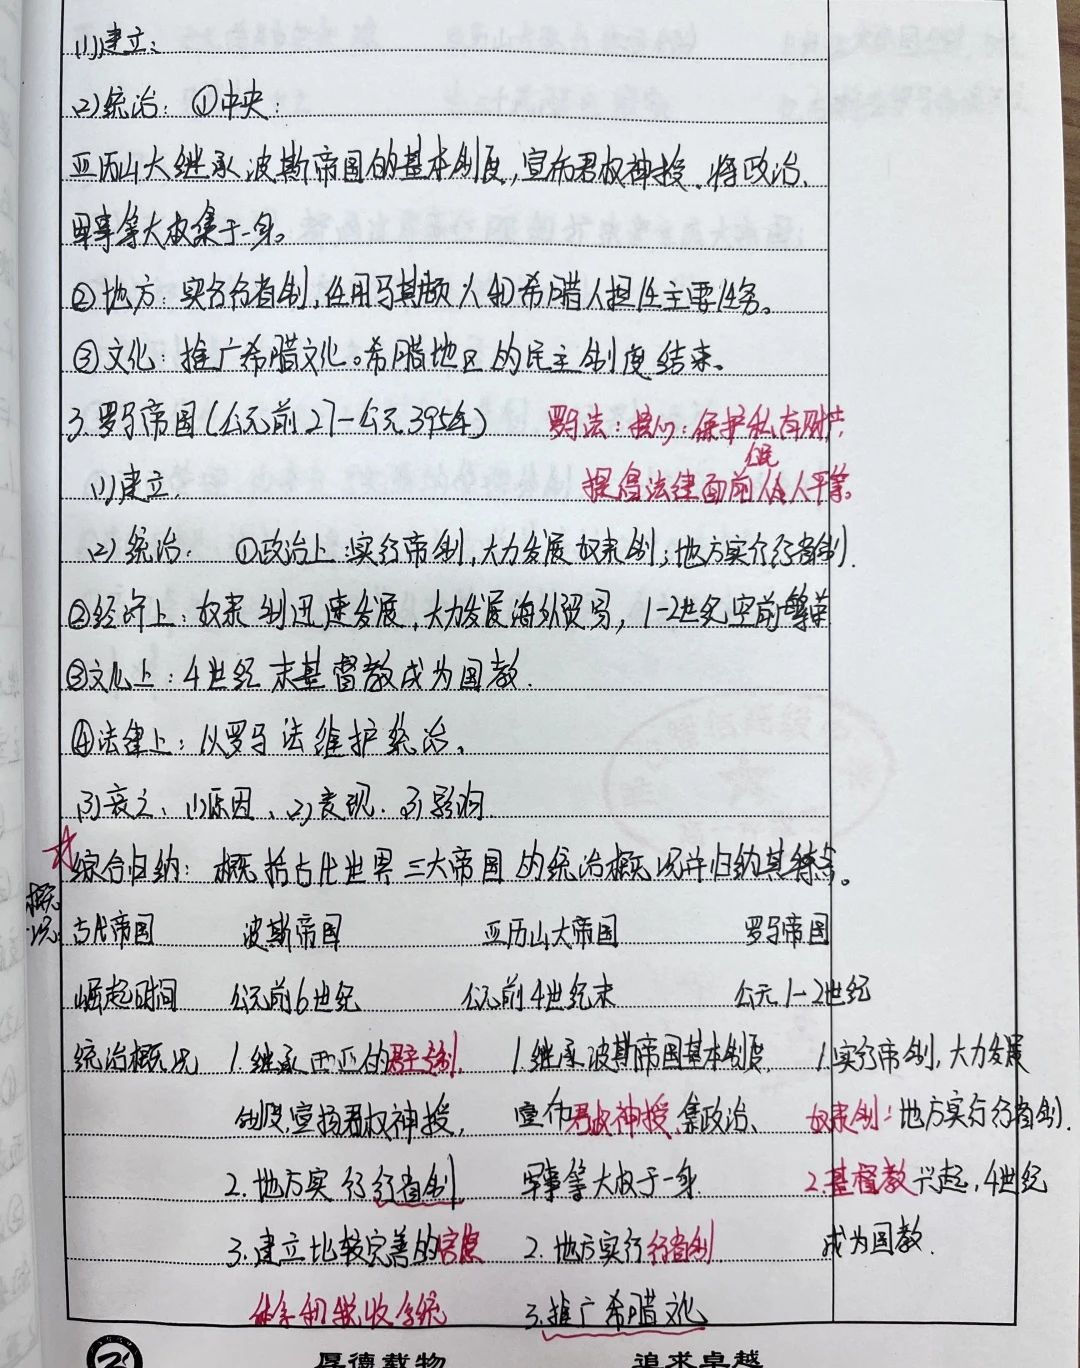 (1)建立:
(2)统治: ①中央:
亚历山大继承波斯帝国的基本制度,宣布君权神授、将政治、
军事等大权集于一身。
②地方: 实行行省制,任用马其顿人和希腊人担任主要任务。
③文化: 推广希腊文化。希腊地区的民主制度结束。
3.罗马帝国(公元前27-公元395年) 罗马法:核心:保护私有财产
(1)建立. 提倡法律面前公民人人平等。
(2)统治. ①政治上:实行帝制,大力发展奴隶制;地方实行行省制.
②经济上:奴隶制迅速发展,大力发展海外贸易, 1-2世纪空前繁荣
③文化上: 4世纪末基督教成为国教.
④法律上: 以罗马法维护统治。
(3)衰亡、(1)原因、(2)表现. (3)影响
综合归纳: 概括古代世界三大帝国的统治概况并归纳其特点。
概况
古代帝国 波斯帝国 亚历山大帝国 罗马帝国
崛起时间 公元前6世纪 公元前4世纪末 公元1-2世纪
统治概况 1.继承西亚的君主专制 1.继承波斯帝国基本制度 1.实行帝制,大力发展
制度,宣扬君权神授, 宣布君权神授,集政治、 奴隶制:地方实行行省制.
2.地方实行行省制 军事等大权于一身. 2.基督教兴起,4世纪
3.建立比较完善的官僚 2.地方实行行省制 成为国教.
体系和税收系统 3.推广希腊文化
厚德载物 追求卓越